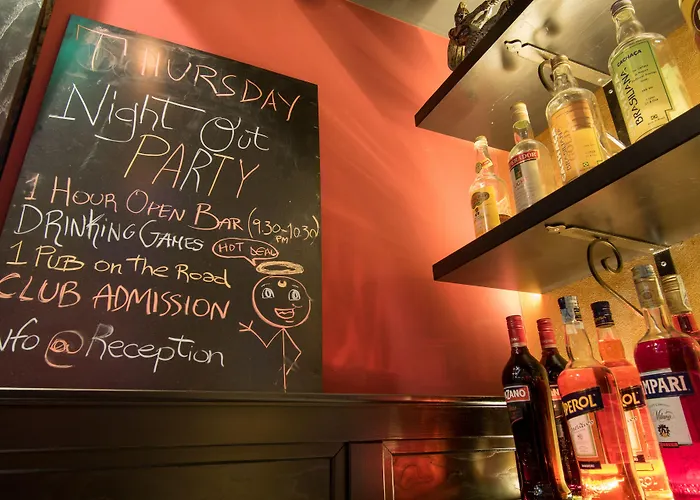 THURSDAY
Night Out
PARTY
1 HOUR OPEN BAR (9.30-10.30 PM)
DRINKING GAMES
HOT DEAL
1 PUB ON THE ROAD
CLUB ADMISSION
Info @ Reception
CACHAÇA
BRASILIANA
ZANO
PEROL
MPARI